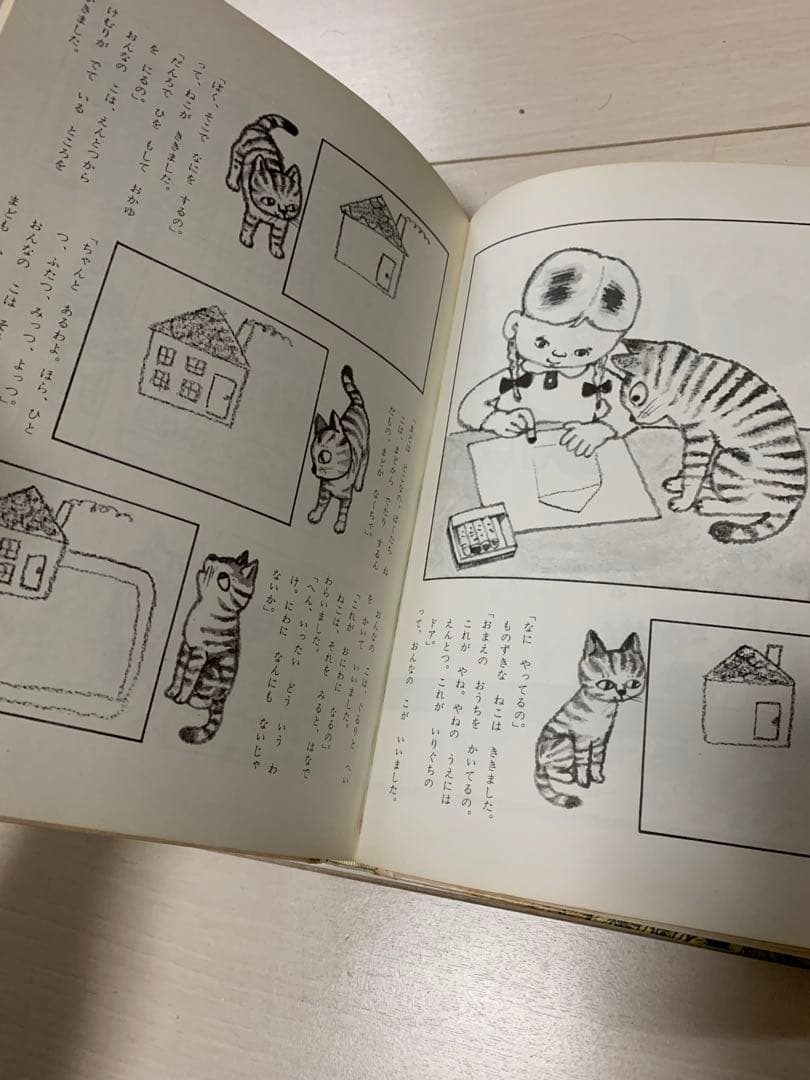 「なに やってるの」。
ものずきな ねこは ききました。
「おまえの おうちを かいてるの。
これが やね。やねの うえには
えんとつ。これが いりぐちの
ドア」。
って、おんなの こが いいました。
「ぼく、そこで なにを するの」。
って、ねこが ききました。
「だんろで ひを もして おかゆ
を にるの」。
おんなの こは、えんとつから
けむりが でて いる ところを
きました。
「まどは どこなの。ぼくたち ね
こは、まどから でたり するん
だもの、まどが なくちゃ」。
「ちゃんと あるわよ。ほら、ひと
つ、ふたつ、みっつ、よっつ」。
おんなの こは
まども
おんなの こは、ぐるりと へい
を かいて いいました。
「これが おにわに なるの」
ねこは、それを みると、はなで
わらいました。
「へん、いったい どう いう わ
け。にわに なんにも ないじゃ
ないか」。